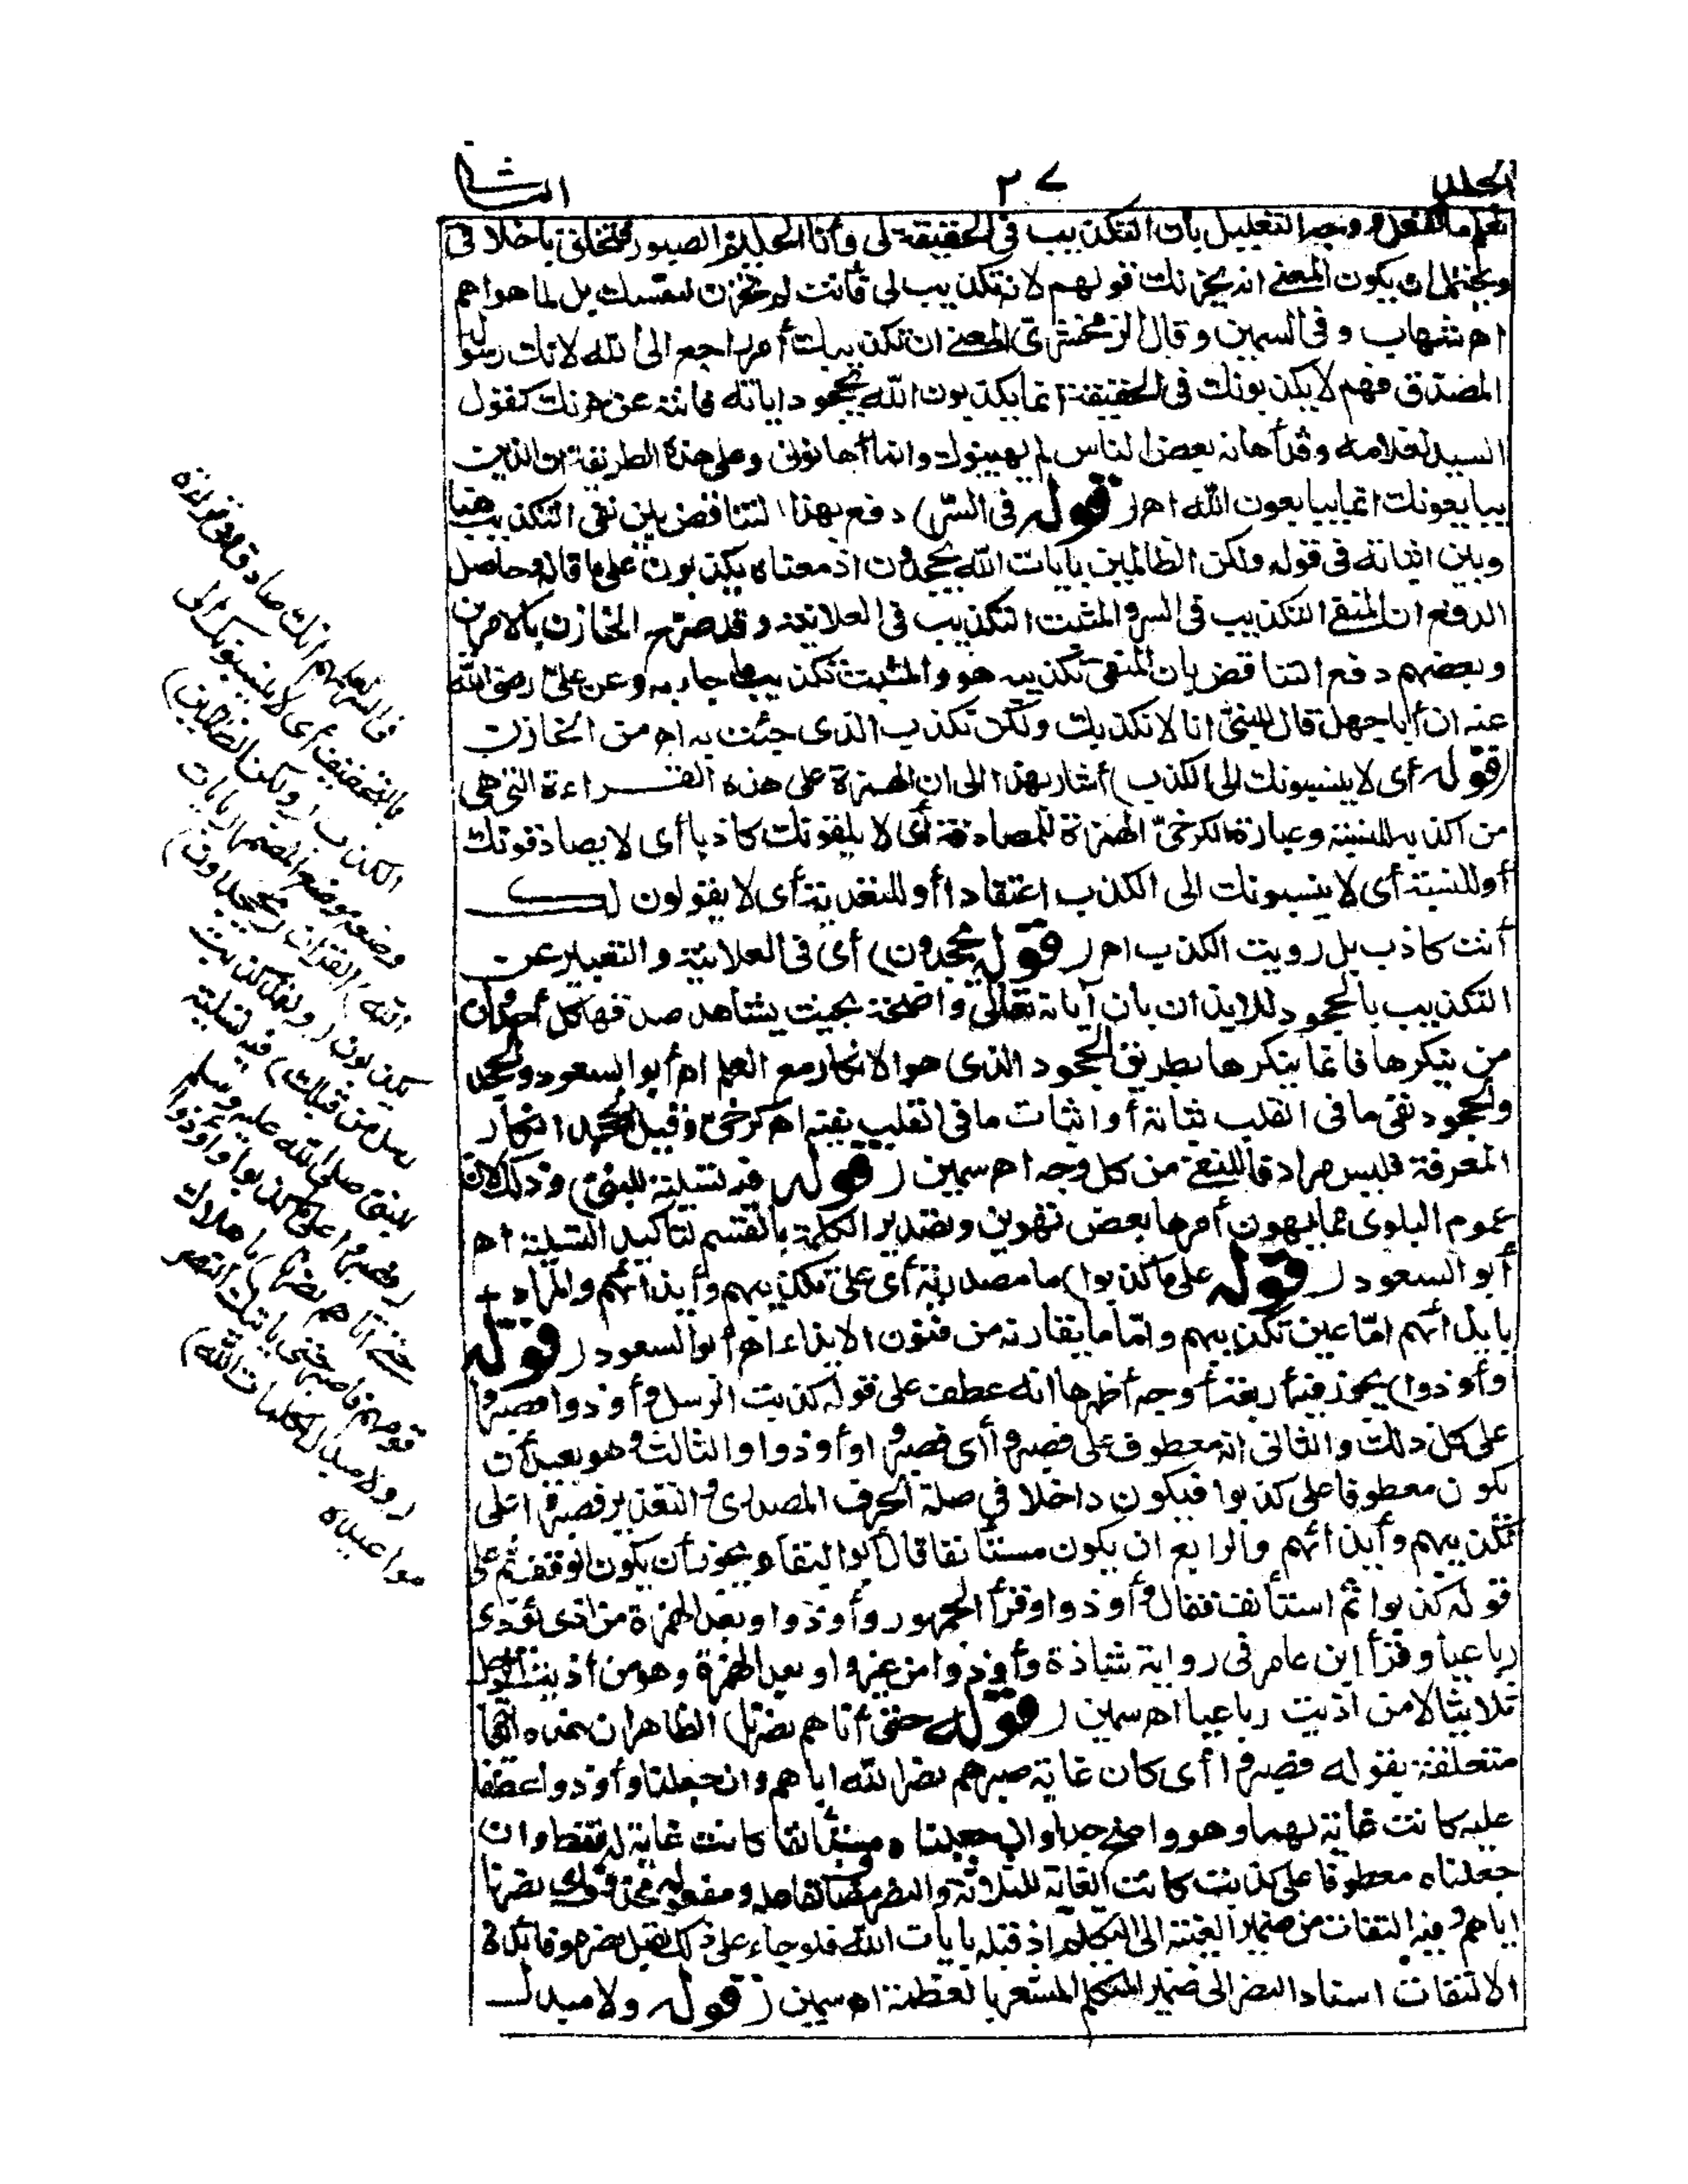 الجلد ٢٧ الثانى
نعلم ما تفعل ووجه التعليل بأن التكذيب فى الحقيقة لى وأنا الحليم الصبور فتخلق بأخلاقى
ويحتمل ان يكون المعنى انه يحزنك قولهم لانه تكذيب لى فأنت لم تحزن لنفسك بل لما هو اهم
اه شهاب وفى السمين وقال الزمخشرىّ المعنى ان تكذيبك أمر راجع الى الله لانك رسوله
المصدق فهم لا يكذبونك فى الحقيقة انما يكذبون الله بجحود اياته فانته عن حزنك كقول
السيد لغلامه وقد أهانه بعض الناس لم يهينوك وانما أهانونى وعلى هذه الطريقة ان الذين
يبايعونك انما يبايعون الله اه (قوله فى السر) دفع بهذا التناقض بين نفى التكذيب هنا
وبين اثباته فى قوله ولكن الظالمين بايات الله يجحدون اذ معناه يكذبون على ما قاله وحاصل
الدفع ان المنفى التكذيب فى السر والمثبت التكذيب فى العلانية وقد صرّح الخازن بالامرين
وبعضهم دفع التناقض بان المنفى تكذيبه هو والمثبت تكذيب ما جاء به وعن علىّ رضى الله
عنه ان أبا جهل قال للنبىّ انا لا نكذبك ولكن نكذب الذى جئت به اه من الخازن
(قوله أى لا ينسبونك الى الكذب) أشار بهذا الى ان الهمزة على هذه القراءة التى هى
من اكذبه للنسبة وعبارة الكرخىّ الهمزة للمصادفة أى لا يلفونك كاذبا أى لا يصادفونك
أو للنسبة أى لا ينسبونك الى الكذب اعتقادا أو للتعدية أى لا يقولون لك
أنت كاذب بل رويت الكذب اه (قوله يجحدون) أى فى العلانية والتعبير عن
التكذيب بالجحود للايذان بان آياته تعالى واضحة بحيث يشاهد صدقها كل أحد وان
من ينكرها فانما ينكرها بطريق الجحود الذى هو الانكار مع العلم اه أبو السعود والجحد
والجحود نفى ما فى القلب ثباته أو اثبات ما فى القلب نفيه اه كرخى وقيل الجحد انكار
المعرفة فليس مرادفا للنفى من كل وجه اه سمين (قوله فيه تسلية للنبى) وذلك لان
عموم البلوى مما يهون أمرها بعض تهوين وتصدير الكلمة بالقسم لتأكيد التسلية اه
أبو السعود (قوله على ما كذبوا) ما مصدرية أى على تكذيبهم وأيذائهم والمراد
بايذائهم امّا عين تكذيبهم وامّا ما يقارنه من فنون الايذاء اه أبو السعود (قوله
وأوذوا) يجوز فيه أربعة أوجه أظهرها انه عطف على قوله كذبت أى كذبت الرسل وأوذوا فصبروا
على كل ذلك والثانى انه معطوف على فصبروا أى فصبروا وأوذوا والثالث وهو بعيد أن
يكون معطوفا على كذبوا فيكون داخلا فى صلة الحرف المصدرى والتقدير فصبروا على
تكذيبهم وأيذائهم والرابع ان يكون مستأنفا قال أبو البقاء ويجوز أن يكون الوقف تم على
قوله كذبوا ثم استأنف فقال وأوذوا وقرأ الجمهور وأوذوا بواو بعد الهمزة من اذى يؤذى
رباعيا وقرأ ابن عامر فى رواية شاذة وأذوا من غير واو بعد الهمزة وهو من أذيت الرجل
ثلاثيا لا من آذيت رباعيا اه سمين (قوله حتى أتاهم نصرنا) الظاهر ان هذه الغاية
متعلقة بقوله فصبروا أى كان غاية صبرهم نصر الله اياهم وان جعلنا وأوذوا عطفا
عليه كانت غاية لهما وهو واضح جدا وان جعلناه مستأنفا كانت غاية له فقط وان
جعلناه معطوفا على كذبت كانت الغاية للثلاثة والنصر مضاف لفاعله ومفعوله محذوف أى نصرنا
اياهم وفيه التفات من ضمير الغيبة الى التكلم اذ قبله بايات الله فلو جاء على ذلك لقيل نصره وفائدة
الالتفات اسناد النصر الى ضمير المتكلم المشعر بالعظمة اه سمين (قوله ولا مبدل
فى السر لعلمهم انك صادق وفى قراءة
بالتخفيف أى لا ينسبونك الى
الكذب (ولكن الظالمين)
وضعه موضع المضمر (بايات
الله) القرآن (يجحدون)
يكذبون (ولقد كذبت
رسل من قبلك) فيه تسلية
للنبى صلى الله عليه وسلم
(فصبروا على ما كذبوا وأوذوا
حتى أتاهم نصرنا) باهلاك
قومهم فاصبر حتى يأتيك النصر
(ولا مبدل لكلمات الله)
مواعيده